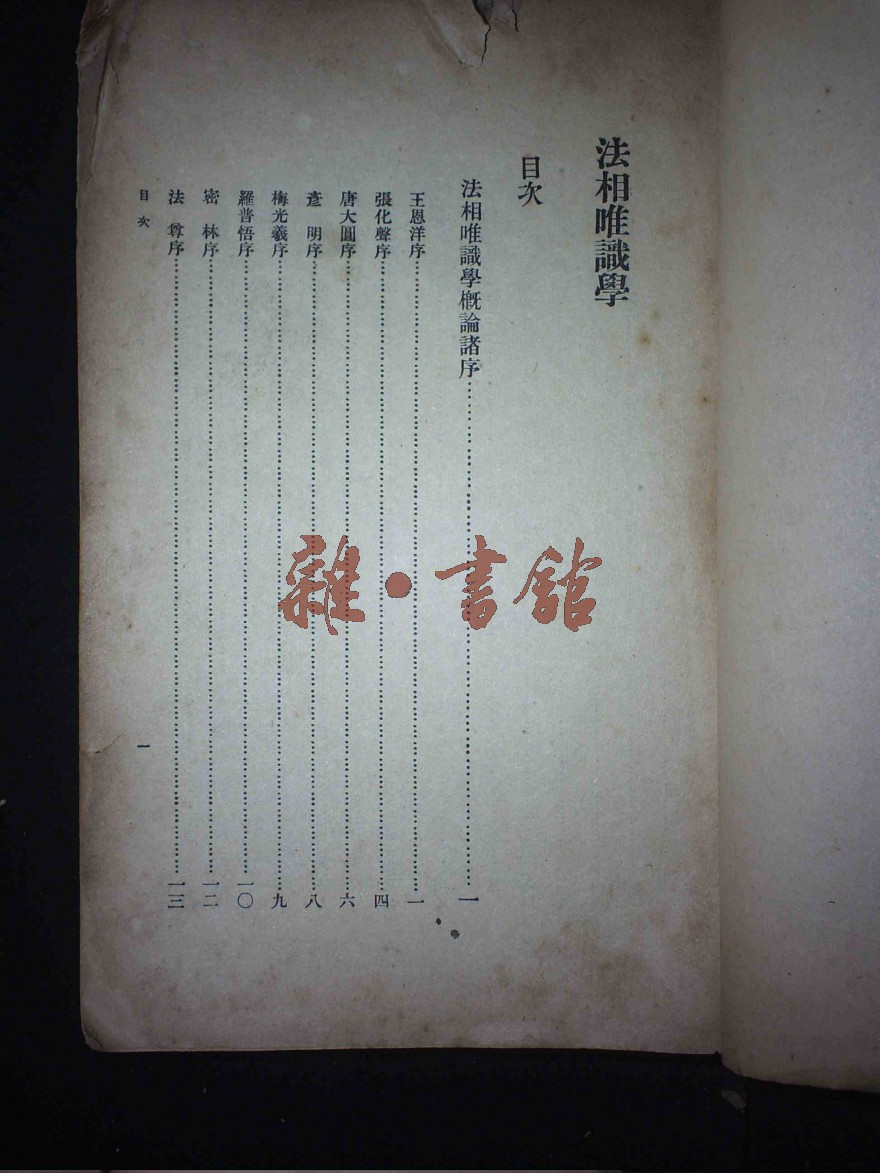 法相唯識學
目次
法相唯識學概論諸序…………一
王恩洋序…………一
張化聲序…………四
唐大圓序…………六
彥　明序…………八
梅光羲序…………九
羅普悟序…………一〇
密　林序…………一二
法　尊序…………一三
目次
一
雜·書館